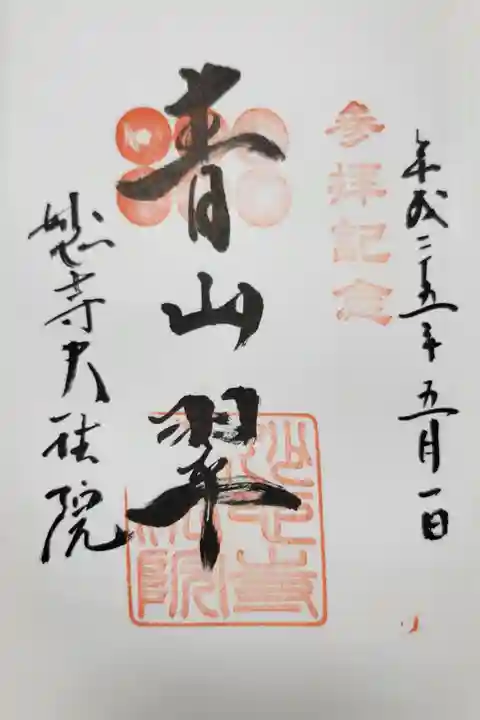 平成二十五年五月一日
参拝記念
青山翠
妙心寺
大法院
妙心寺大法院